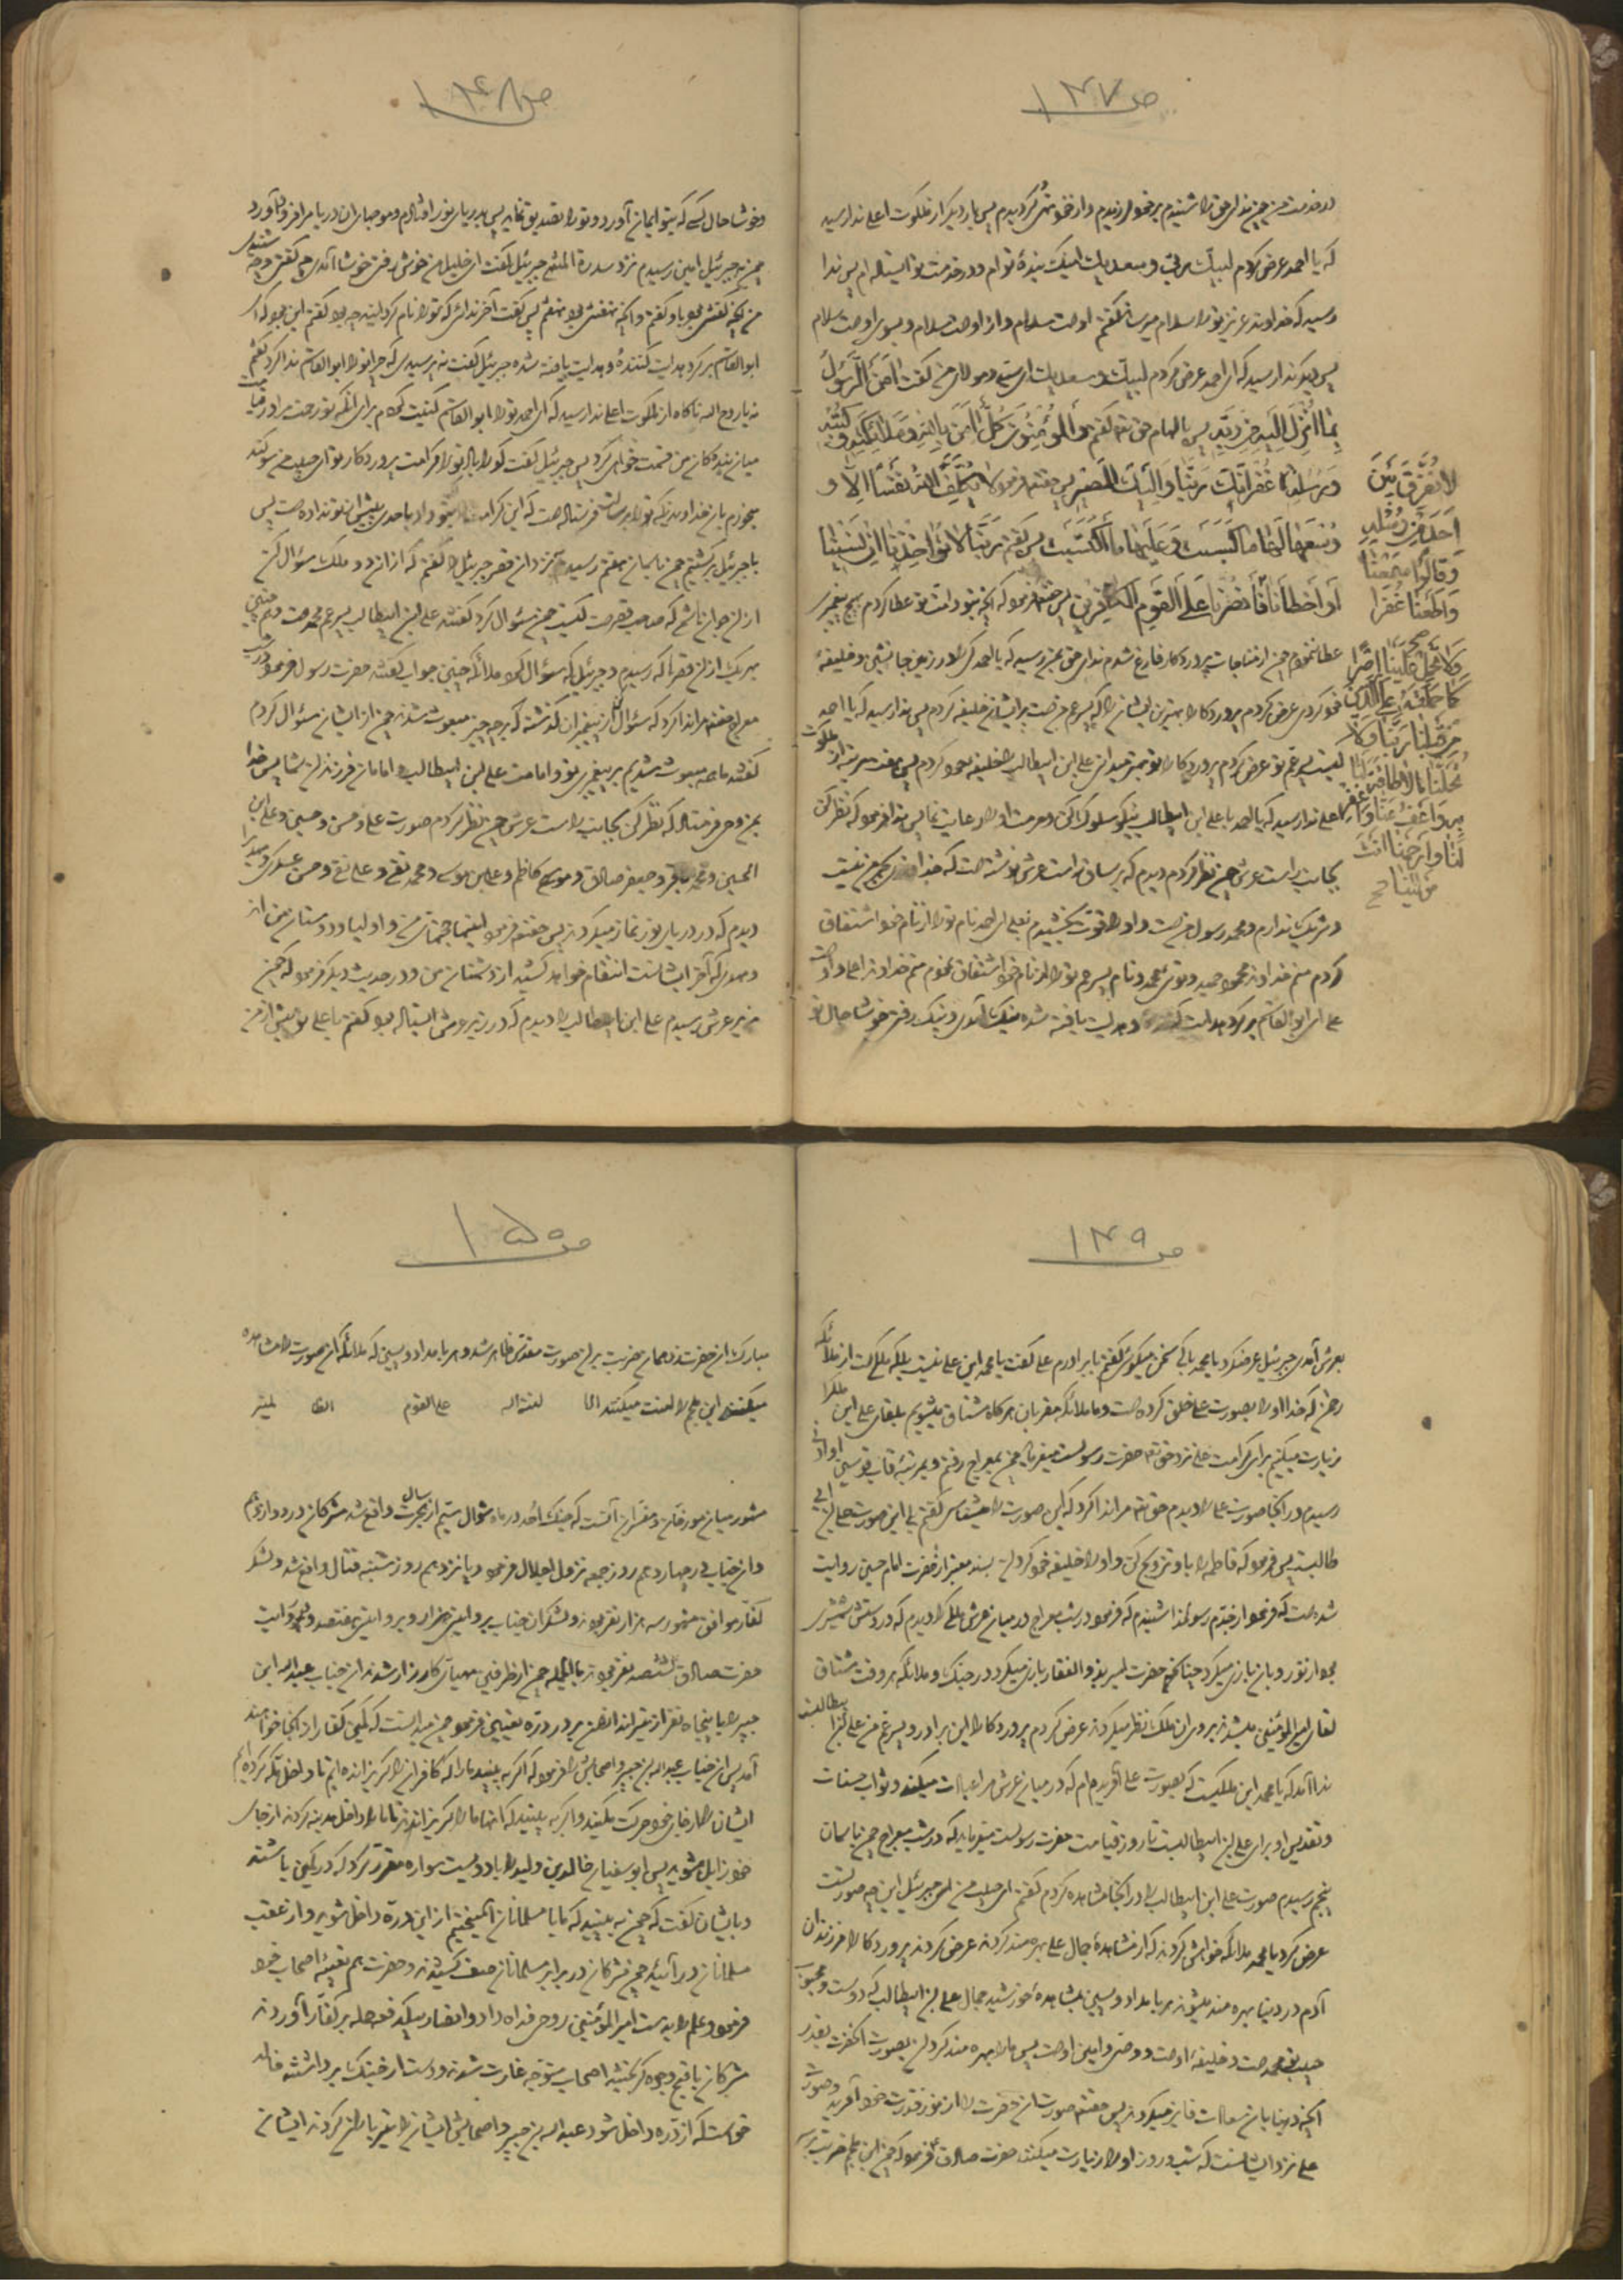 ص ١٤٧
در خدمت من چون ندای حق را شنیدم بر خود لرزیدم و از خود بیخود گردیدم پس بار دیگر از ملکوت اعلی ندا رسید
که یا احمد عرض کردم لبیک ربی و سعدیک اینک بندهٔ توام و در خدمت تو ایستاده‌ام پس ندا
رسید که خداوند عزیز تو را سلام میرساند گفتم اوست سلام و از اوست سلام و بسوی اوست سلام
پس دیگر ندا رسید که ای احمد عرض کردم لبیک و سعدیک ای سید و مولای من گفت اٰمَنَ الرَّسُولُ
بِمٰا اُنْزِلَ اِلَیْهِ مِنْ رَبِّهِ پس بالهام حق تعه گفتم وَالْمُؤْمِنُونَ کُلٌّ اٰمَنَ بِاللّٰهِ وَمَلٰائِکَتِهِ وَکُتُبِهِ
وَرُسُلِهِ غُفْرٰانَکَ رَبَّنٰا وَاِلَیْکَ الْمَصیرُ پس حقتعه فرمود لٰا یُکَلِّفُ اللّٰهُ نَفْسًا اِلّٰا وُ
وُسْعَهٰا لَهٰا مٰا کَسَبَتْ وَعَلَیْهٰا مَا اکْتَسَبَتْ پس گفتم رَبَّنٰا لٰا تُؤٰاخِذْنٰا اِنْ نَسینٰا
اَوْ اَخْطَأْنٰا فَانْصُرْنٰا عَلَی الْقَوْمِ الْکٰافِرینَ پس حقتعه فرمود که آنچه بتو و امت تو عطا کردم بهیچ پیغمبر
عطا ننمودم چون از مناجات پروردگار فارغ شدم ندای حق بمن رسید که یا احمد کرا در زمین جانشین و خلیفهٔ
خود کردی عرض کردم پروردگارا بهترین ایشانرا که پسر عم منست بر ایشان خلیفه کردم پس ندا رسید که یا احمد
کیست پسر عم تو عرض کردم پروردگارا تو بهتر میدانی علی ابن ابیطالب را خلیفه نمودم پس هفت مرتبه از ملکوت
اعلی ندا رسید که یا احمد با علی ابن ابیطالب نیکو سلوک کن و حرمت او را رعایت نما پس ندا فرمود که نظر کن
بجانب راست عرش چون نظر کردم دیدم که بر ساق راست عرش نوشته است که خدائی بجز من نیست
و شریک ندارم و محمد رسول من است و او را قوت بخشیدم بعلی ای احمد نام تو را از نام خود اشتقاق
کردم منم خداوند محمود حمید و توئی محمد و نام پسر عم تو را از نام خود اشتقاق نمودم منم خداوند اعلی و اوست
علی ای ابوالقاسم برگرد هدایت کننده و هدایت یافته شده نیک آمدی و نیک رفتی خوشا حال تو
لٰا نُفَرِّقُ بَیْنَ
اَحَدٍ مِنْ رُسُلِهِ
وَقٰالُوا سَمِعْنٰا
وَاَطَعْنٰا غُفْرٰا
وَلٰا تَحْمِلْ عَلَیْنٰا اِصْرًا
کَمٰا حَمَلْتَهُ عَلَی الَّذینَ
مِنْ قَبْلِنٰا رَبَّنٰا وَلٰا
تُحَمِّلْنٰا مٰا لٰا طٰاقَةَ لَنٰا
بِهِ وَاعْفُ عَنّٰا وَاغْفِرْ
لَنٰا وَارْحَمْنٰا اَنْتَ
مَوْلٰینٰا صح
ص ١٤٨
و خوشا حال کسی که بتو ایمان آورد و تو را تصدیق نماید پس بدریای نور افتادم و موجهای آن دریا مرا فرود آورد
چون نزد جبرئیل امین رسیدم نزد سدرة المنتهی جبرئیل گفت ای خلیل من خوش رفتی خوش آمدی چه گفتی و چه شنیدی
من آنچه گفتنی بود باو گفتم و آنچه نهفتنی بود نهفتم پس گفت آخر ندائی که تو را نام کردند چه بود گفتم این بود که ای
ابوالقاسم برگرد هدایت کننده و هدایت یافته شده جبرئیل گفت نپرسیدی که چرا تو را ابوالقاسم ندا کرد گفتم
نه یا روح اله ناگاه از ملکوت اعلی ندا رسید که ای احمد تو را ابوالقاسم کنیت کردم برای آنکه تو رحمت مرا در قیامت
میان بندگان من قسمت خواهی کرد پس جبرئیل گفت گوارا باد تو را کرامت پروردگار تو ای حبیب من سوگند
میخورم بآن خداوندیکه تو را برسالت فرستاده است که این کرامت که بتو داد باحدی پیش از تو نداده است پس
با جبرئیل برگشتیم چون بآسمان هفتم رسیدم نزد آن قصر جبرئیل را گفتم که از آن دو ملک سؤال کن
از آن جوان هاشمی که صاحب قصر است کیست چون سؤال کرد گفتند علی ابن ابیطالب پسر عم محمد است و همچنین
بهر یک از آن قصرها که رسیدم و جبرئیل که سؤال کرد ملائکه چنین جواب گفتند حضرت رسول فرمود در شب
معراج حقتعه مرا ندا کرد که سؤال کن از پیغمبران گذشته که بچه چیز مبعوث شدند چون از ایشان سؤال کردم
گفتند ما همه مبعوث شدیم بر پیغمبری تو و امامت علی ابن ابیطالب و امامان فرزندان شما پس خدا
بمن وحی فرستاد که نظر کن بجانب راست عرش چون نظر کردم صورت علی و حسن و حسین و علی ابن
الحسین و محمد باقر و جعفر صادق و موسی کاظم و علی بن موسی و محمد تقی و علی نقی و حسن عسکری و مهدیرا
دیدم که در دریای نور نماز میکردند پس حقتعه فرمود اینها حجتهای منند و اولیاء و دوستان من اند
و مهدی که آخر ایشانست انتقام خواهد کشید از دشمنان من و در حدیث دیگر فرمود که چون
بزیر عرش رسیدم علی ابن ابیطالب را دیدم که در زیر عرش ایستاده بود گفتم یا علی تو پیش از من
ص ١٤٩
بعرش آمدی جبرئیل عرضکرد یا محمد با که سخن میگوئی گفتم با برادرم علی گفت یا محمد این علی نیست بلکه ملکی است از ملائکه
رحمن که خدا او را بصورت علی خلق کرده است و ما ملائکه مقربان هرگاه مشتاق میشویم بلقای علی این ملکرا
زیارت میکنیم برای کرامت علی نزد حق تعه حضرت رسولست میفرماید چون بمعراج رفتم و بمرتبهٔ قاب قوسین او ادنی
رسیدم در آنجا صورت علی را دیدم حق تعه مرا ندا کرد که این صورت را میشناسی گفتم بلی این صورت علی ابن ابی
طالبست پس فرمود که فاطمه را باو تزویج کن و او را خلیفه خود گردان بسند معتبر از حضرت امام حسین روایت
شده است که فرمود از جدم رسولخدا شنیدم که فرمود در شب معراج در میان عرش ملکی را دیدم که در دستش شمشیری
بود از نور و بآن بازی میکرد چنانکه حضرت امیر بذوالفقار بازی میکرد در جنگ و ملائکه هر وقت مشتاق
لقای امیر المؤمنین میشدند بروی آن ملک نظر میکردند عرض کردم پروردگارا این برادر و پسر عم من علی ابن ابیطالبست
ندا آمد که یا محمد این ملکیست که بصورت علی آفریده‌ام که در میان عرش مرا عبادت میکند و ثواب حسنات
و تقدیس او برای علی ابن ابیطالبست تا روز قیامت حضرت رسولست میفرماید که در شب معراج چون بآسمان
پنجم رسیدم صورت علی ابن ابیطالب را در آنجا مشاهده کردم گفتم ای حبیب من ای جبرئیل این چه صورتست
عرض کرد یا محمد ملائکه خواهش کردند که از مشاهدهٔ جمال علی بهره‌مند گردند عرض کردند پروردگارا فرزندان
آدم در دنیا بهره‌مند میشوند هر بامداد و پسین بمشاهدهٔ خورشید جمال علی ابن ابیطالب که دوست و محبوب
حبیب تو محمد است و خلیفهٔ اوست و وصی و امین اوست پس ما را بهره‌مند گردان بصورت آنحضرت بقدر
آنچه دنیائیان بسعادت فایز میگردند پس حقتعه صورت آن حضرت را از نور قدرت خود آفرید و صورت
علی نزد ایشانست که شب و روز او را زیارت میکنند حضرت صادق فرمود که چون ابن ملجم ضربت بر سر
ص ١٥٠
مبارک آن حضرت زد همان ضربت بر آن صورت مقدس ظاهر شد و هر بامداد و پسین که ملائکه آن صورت را مشاهده
میکنند ابن ملجم را لعنت میکنند الا لعنة اله علی القوم الظالمین
مشهور میان مورخان و مفسران آنست که جنگ احد در ماه شوال سیم از سال هجرت واقع شد مشرکان در دوازدهم
و آن جناب در چهاردهم روز جمعه نزول اجلال فرمود و پانزدهم روز شنبه قتال واقع شد و لشکر
کفار موافق مشهور سه هزار نفر بودند و لشکر آن جناب بروایتی هزار و بروایتی هفتصد و بروایت
حضرت صادق ششصد نفر بودند بالجمله چون از طرفین مهیای کارزار شدند آن جناب عبداله ابن
جبیر را با پنجاه نفر از تیراندازان بر در دره تعیین فرمود چون میدانست که کمین کفار از آنجا خواهند
آمد پس آن جناب عبداله بن جبیر و اصحابش را فرمود که اگر به بینید ما را که کافران را گریزانده‌ایم تا داخل مکه کرده‌ایم
ایشان را از جای خود حرکت نکنید و اگر به بینید که آنها ما را گریزاندند تا ما را داخل مدینه کردند از جای
خود زایل مشوید پس ابوسفیان خالد بن ولید را با دویست سواره مقرر کرد که در کمین باشند
و بایشان گفت که چون به بینید که ما با مسلمانان آمیختیم از این دره داخل شوید و از عقب
مسلمانان در آئید چون مشرکان در برابر مسلمانان صف کشیدند و حضرت هم تعبیهٔ اصحاب خود
فرمود و علم را بدست امیر المؤمنین روحی فداه داد و انصار بیکدفعه حمله بر کفار آوردند
مشرکان باقبح وجوه گریختند اصحاب متوجه غارت شدند و دست از جنگ برداشتند خالد
خواست که از دره داخل شود عبداله بن جبیر و اصحابش ایشان را تیر باران کردند ایشان